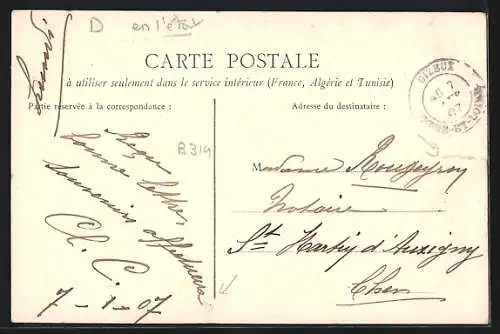 D en l'état
CARTE POSTALE
à utiliser seulement dans le service intérieur (France, Algérie et Tunisie)
Partie réservée à la correspondance :
Adresse du destinataire :
B314
Reçu
bonne lettre
souvenirs affectueux
Ch. C.
7-1-07
Madame Rougeyron
Notaire
St Martin d'Auxigny
Cher